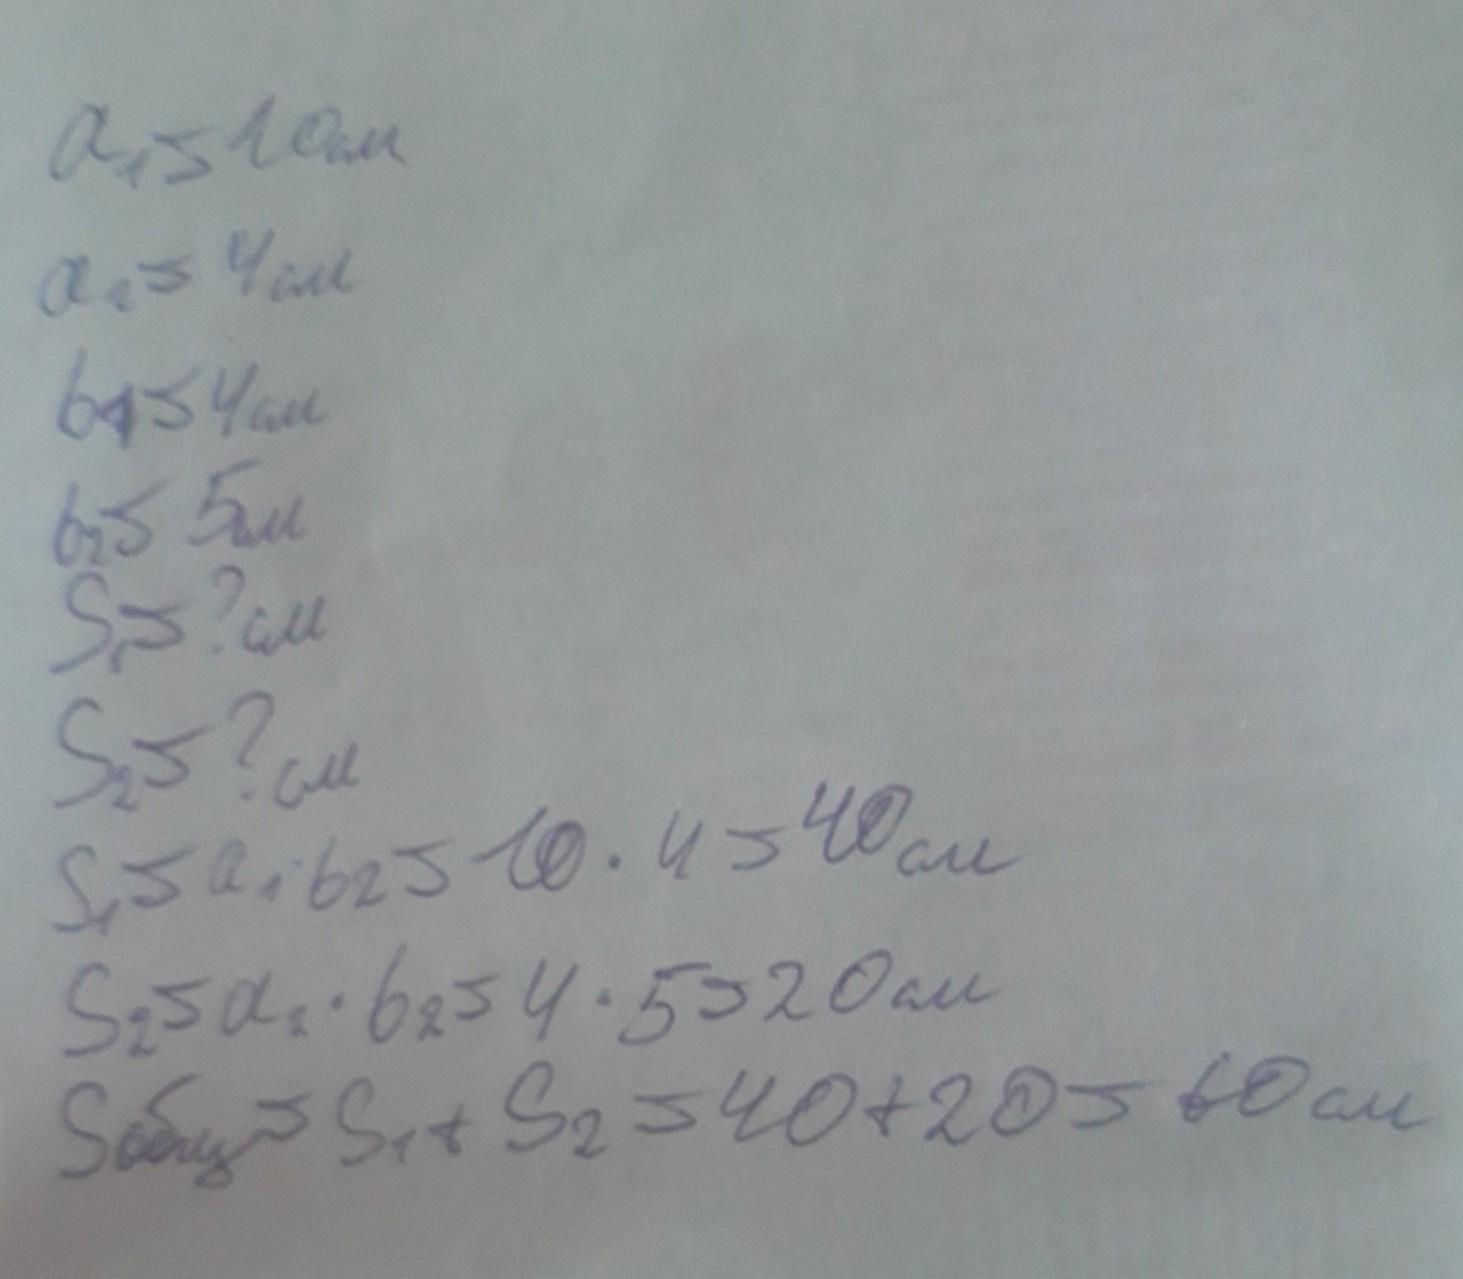 a₁ = 10 см
a₂ = 4 см
b₁ = 4 см
b₂ = 5 см
S₁ = ? см
S₂ = ? см
S₁ = a₁ · b₂ = 10 · 4 = 40 см
S₂ = a₂ · b₂ = 4 · 5 = 20 см
Sобщ = S₁ + S₂ = 40 + 20 = 60 см